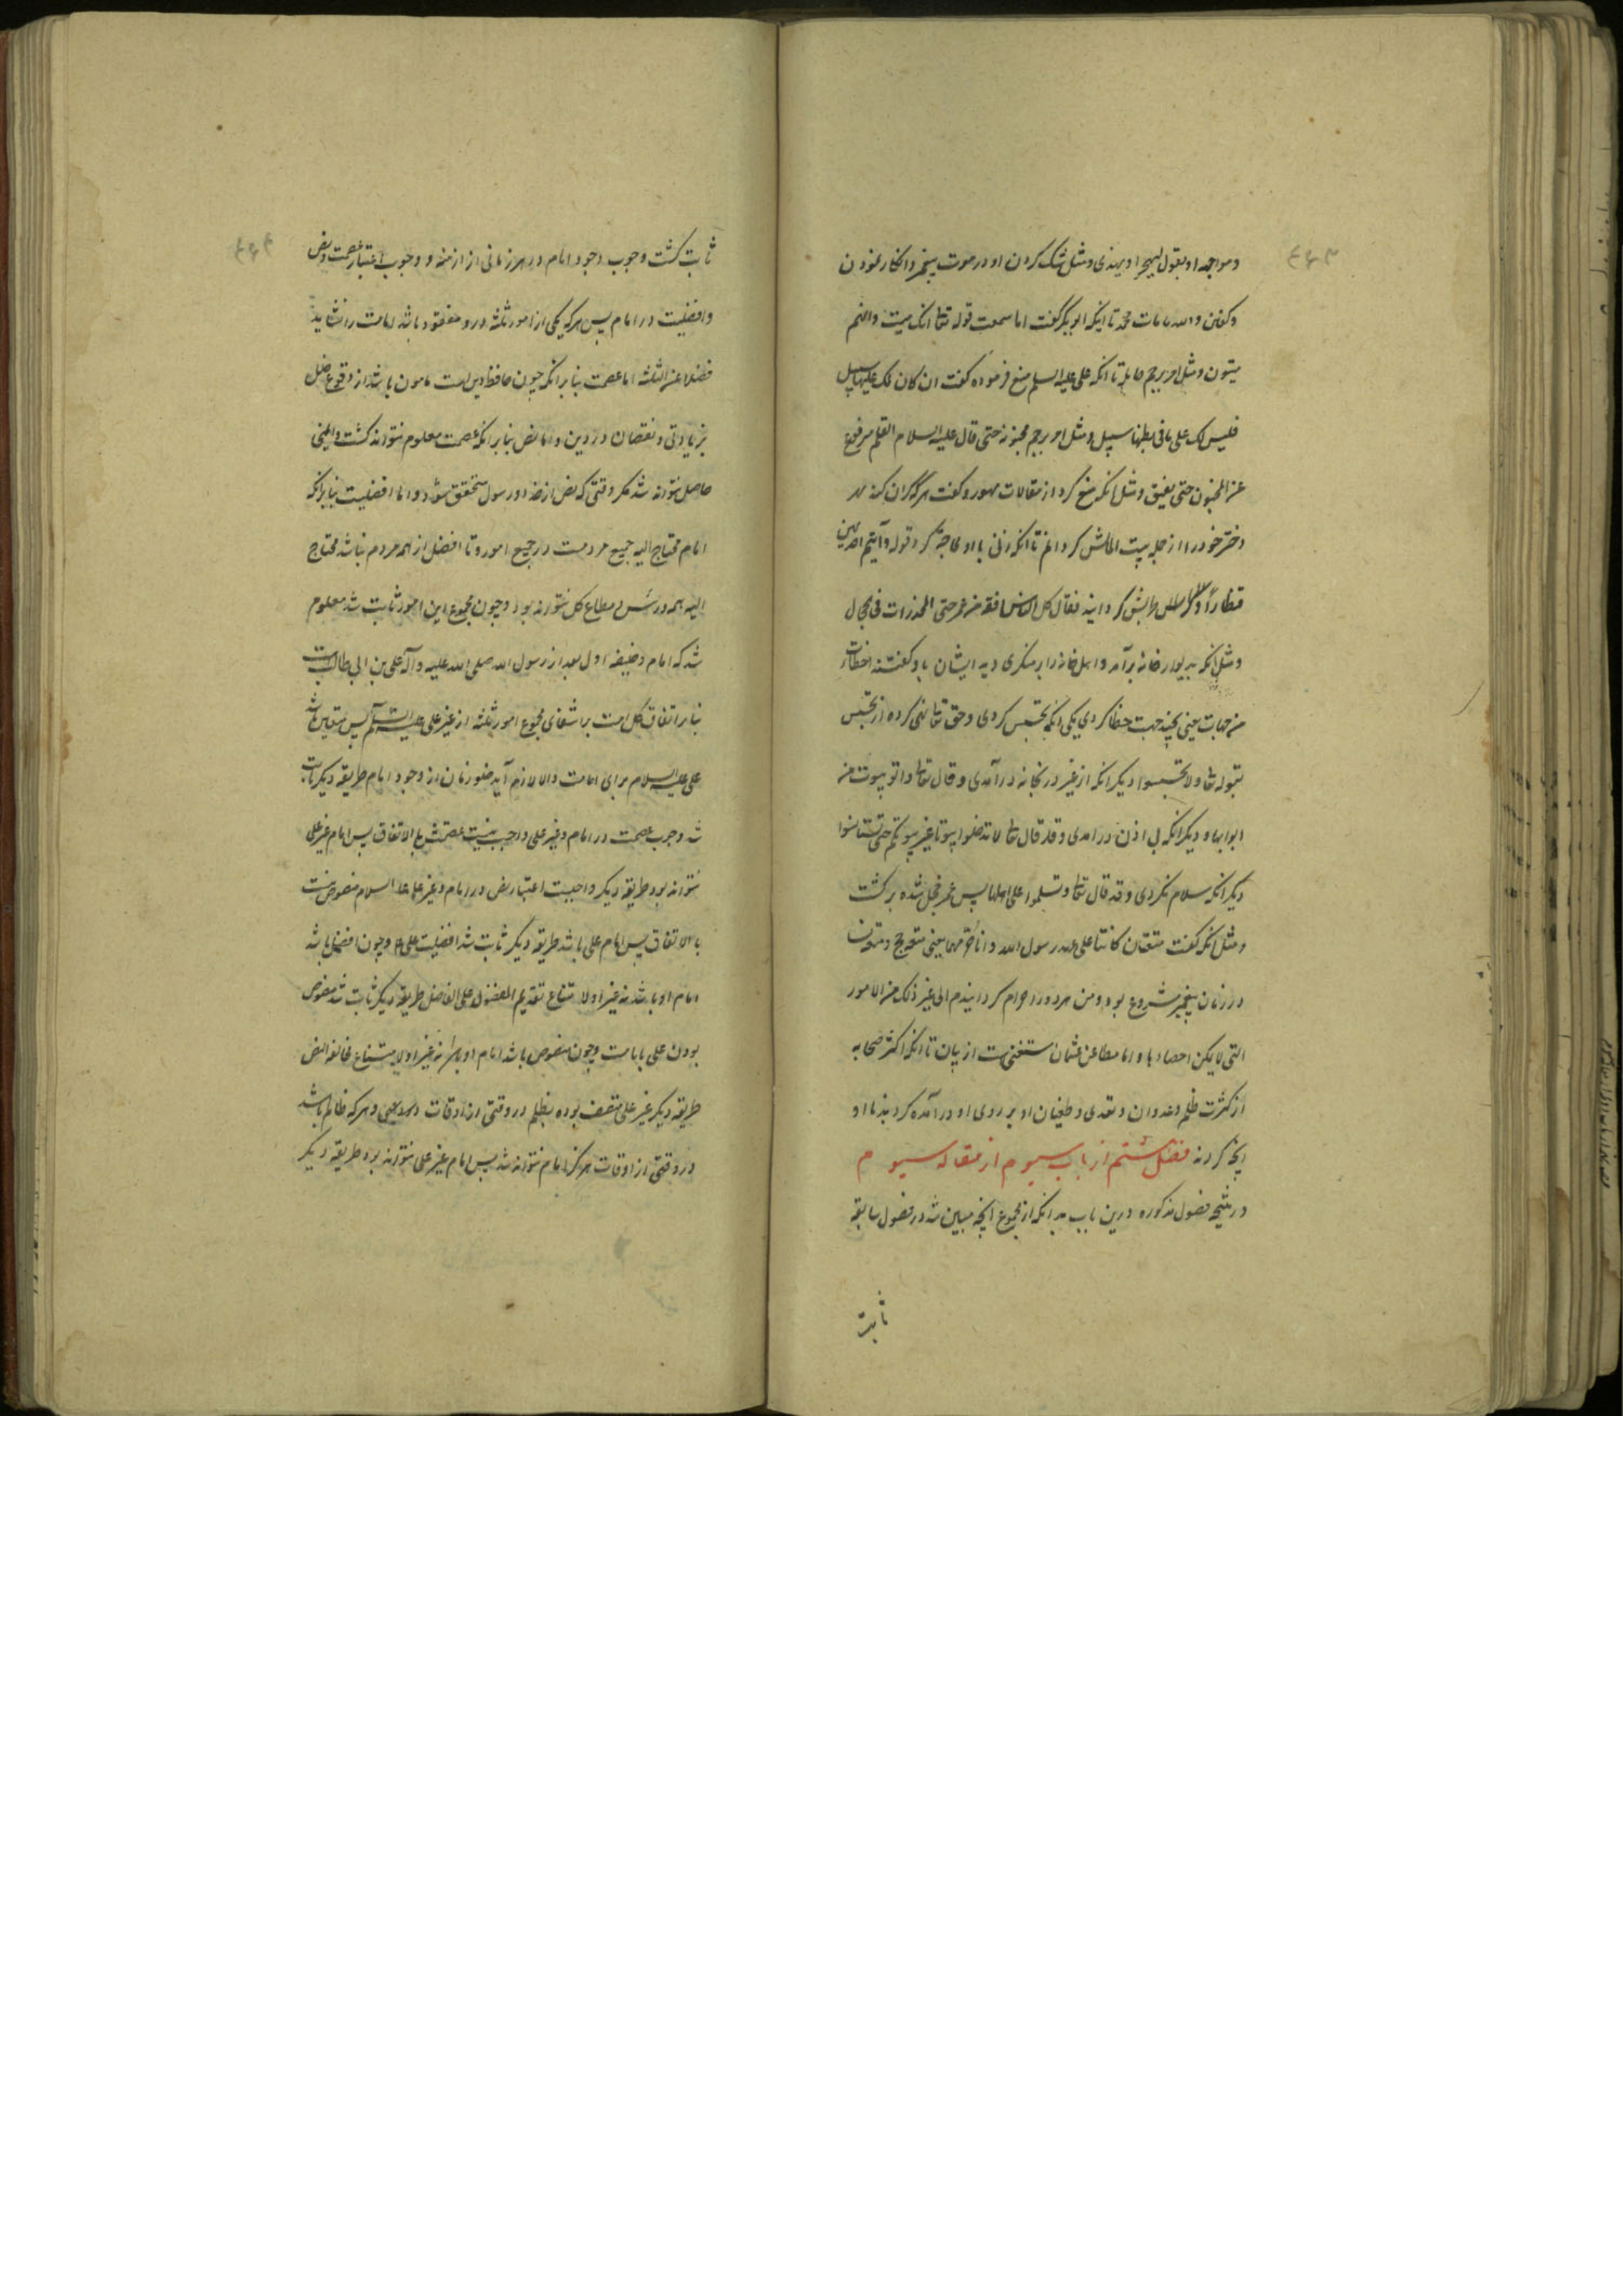 ۴۶۳
و مواجهه او بقول لیهجر او یهذی و مثل شک کردن او در موت پیغمبر و انکار نمودن
و گفتن والله ما مات محمد تا اینکه ابوبکر گفت اما سمعت قوله تعا انک میت و انهم
میتون و مثل امر برجم حامله تا انکه علی علیه السلم منع فرموده گفت ان کان لک علیها سبیل
فلیس لک علی ما فی بطنها سبیل و مثل امر برجم مجنونه حتی قال علیه السلام القلم مرفوع
عن المجنون حتی یفیق و مثل انکه منع کرد از مغالات مهور و گفت هر که گران کند مهر
دختر خود را از جمله بیت المالش گردانم تا انکه زنی با او محاجه کرد قوله و آتیتم احدیهن
قنطارا فقال کل الناس افقه من عمر حتی المخدرات فی الحجال
و مثل انکه بدیوار خانه برآمد و اهل خانه را بر منکری دید ایشان باو گفتند اخطات
من جهات یعنی بچند جهت خطا کردی یکی انکه تجسس کردی و حق تعا نهی کرده از تجسس
بقوله تعا و لا تجسسوا دیگر انکه از غیر در بخانه درآمدی و قال تعا و اتوا البیوت من
ابوابها و دیگر انکه بی اذن درامدی و قد قال تعا لا تدخلوا بیوتا غیر بیوتکم حتی تستانسوا
دیگر انکه سلام نکردی و قد قال تعا و تسلموا علی اهلها پس عمر خجل شده برگشت
و مثل انکه گفت متعتان کانتا علی عهد رسول الله و انا احرمهما یعنی متعه حج و متعه نسا
در زمان پیغمبر مشروع بود و من هر دو را حرام گردانیدم الی غیر ذلک من الامور
التی لا یمکن احصاءها و اما مطاعن عثمان مستغنی است از بیان تا انکه اکثر صحابه
از کثرت ظلم و عدوان و تعدی و طغیان او بر روی او درآمده کردند با او
انچه کردند فصل ششم از باب سیوم از مقاله سیوم
در نتیجه فصول مذکوره درین باب بدانکه از مجموع انچه مبین شد در فصول سابقه
ثابت
۴۶۴
ثابت گشت وجوب وجود امام در هر زمانی از ازمنه و وجوب اعتبار عصمت و نص
و افضلیت در امام پس هر که یکی از امور ثلثه درو مفقود باشد امامت را نشاید
فضلا عن الثلثه اما عصمت بنابر انکه چون حافظ دین است مامون باشد از وقوع خلل
بزیادتی و نقصان در دین و اما نص بنابر انکه عصمت معلوم نتواند گشت و ایمنی
حاصل نتواند شد مگر وقتی که نص از خدا و رسول متحقق شود و اما افضلیت بنابر انکه
امام محتاج الیه جمیع مردمست در جمیع امور و تا افضل از همه مردم نباشد محتاج
الیه همه در مطاع کل نتواند بود و چون مجموع این امور ثابت شد معلوم
شد که امام و خلیفه اول بعد از رسول الله صلی الله علیه و آله علی بن ابی طالب است
بنابر اتفاق کل امت بر انتفای مجموع امور ثلثه از غیر علی علیه السلم پس متعین باشد
علی علیه السلام برای امامت و الا لازم آید خلو زمان از وجود امام طریقه دیگر ثابت
شد وجوب عصمت در امام و غیر علی واجب نیست عصمتش بالاتفاق پس امام غیر علی
نتواند بود طریقه دیگر واجبست اعتبار نص در امام و غیر علی علیه السلام منصوص نیست
بالاتفاق پس امام علی باشد طریقه دیگر ثابت شد افضلیت علی ع و چون افضل باشد
امام او باشد نه غیر او لامتناع تقدیم المفضول علی الفاضل طریقه دیگر ثابت شد منصوص
بودن علی بامامت و چون منصوص باشد امام او باشد نه غیر او لامتناع مخالفه النص
طریقه دیگر غیر علی متصف بوده بظلم در وقتی از اوقات و هر که ظالم باشد
در وقتی از اوقات هرگز امام نتواند شد پس امام غیر علی نتواند بود طریقه دیگر